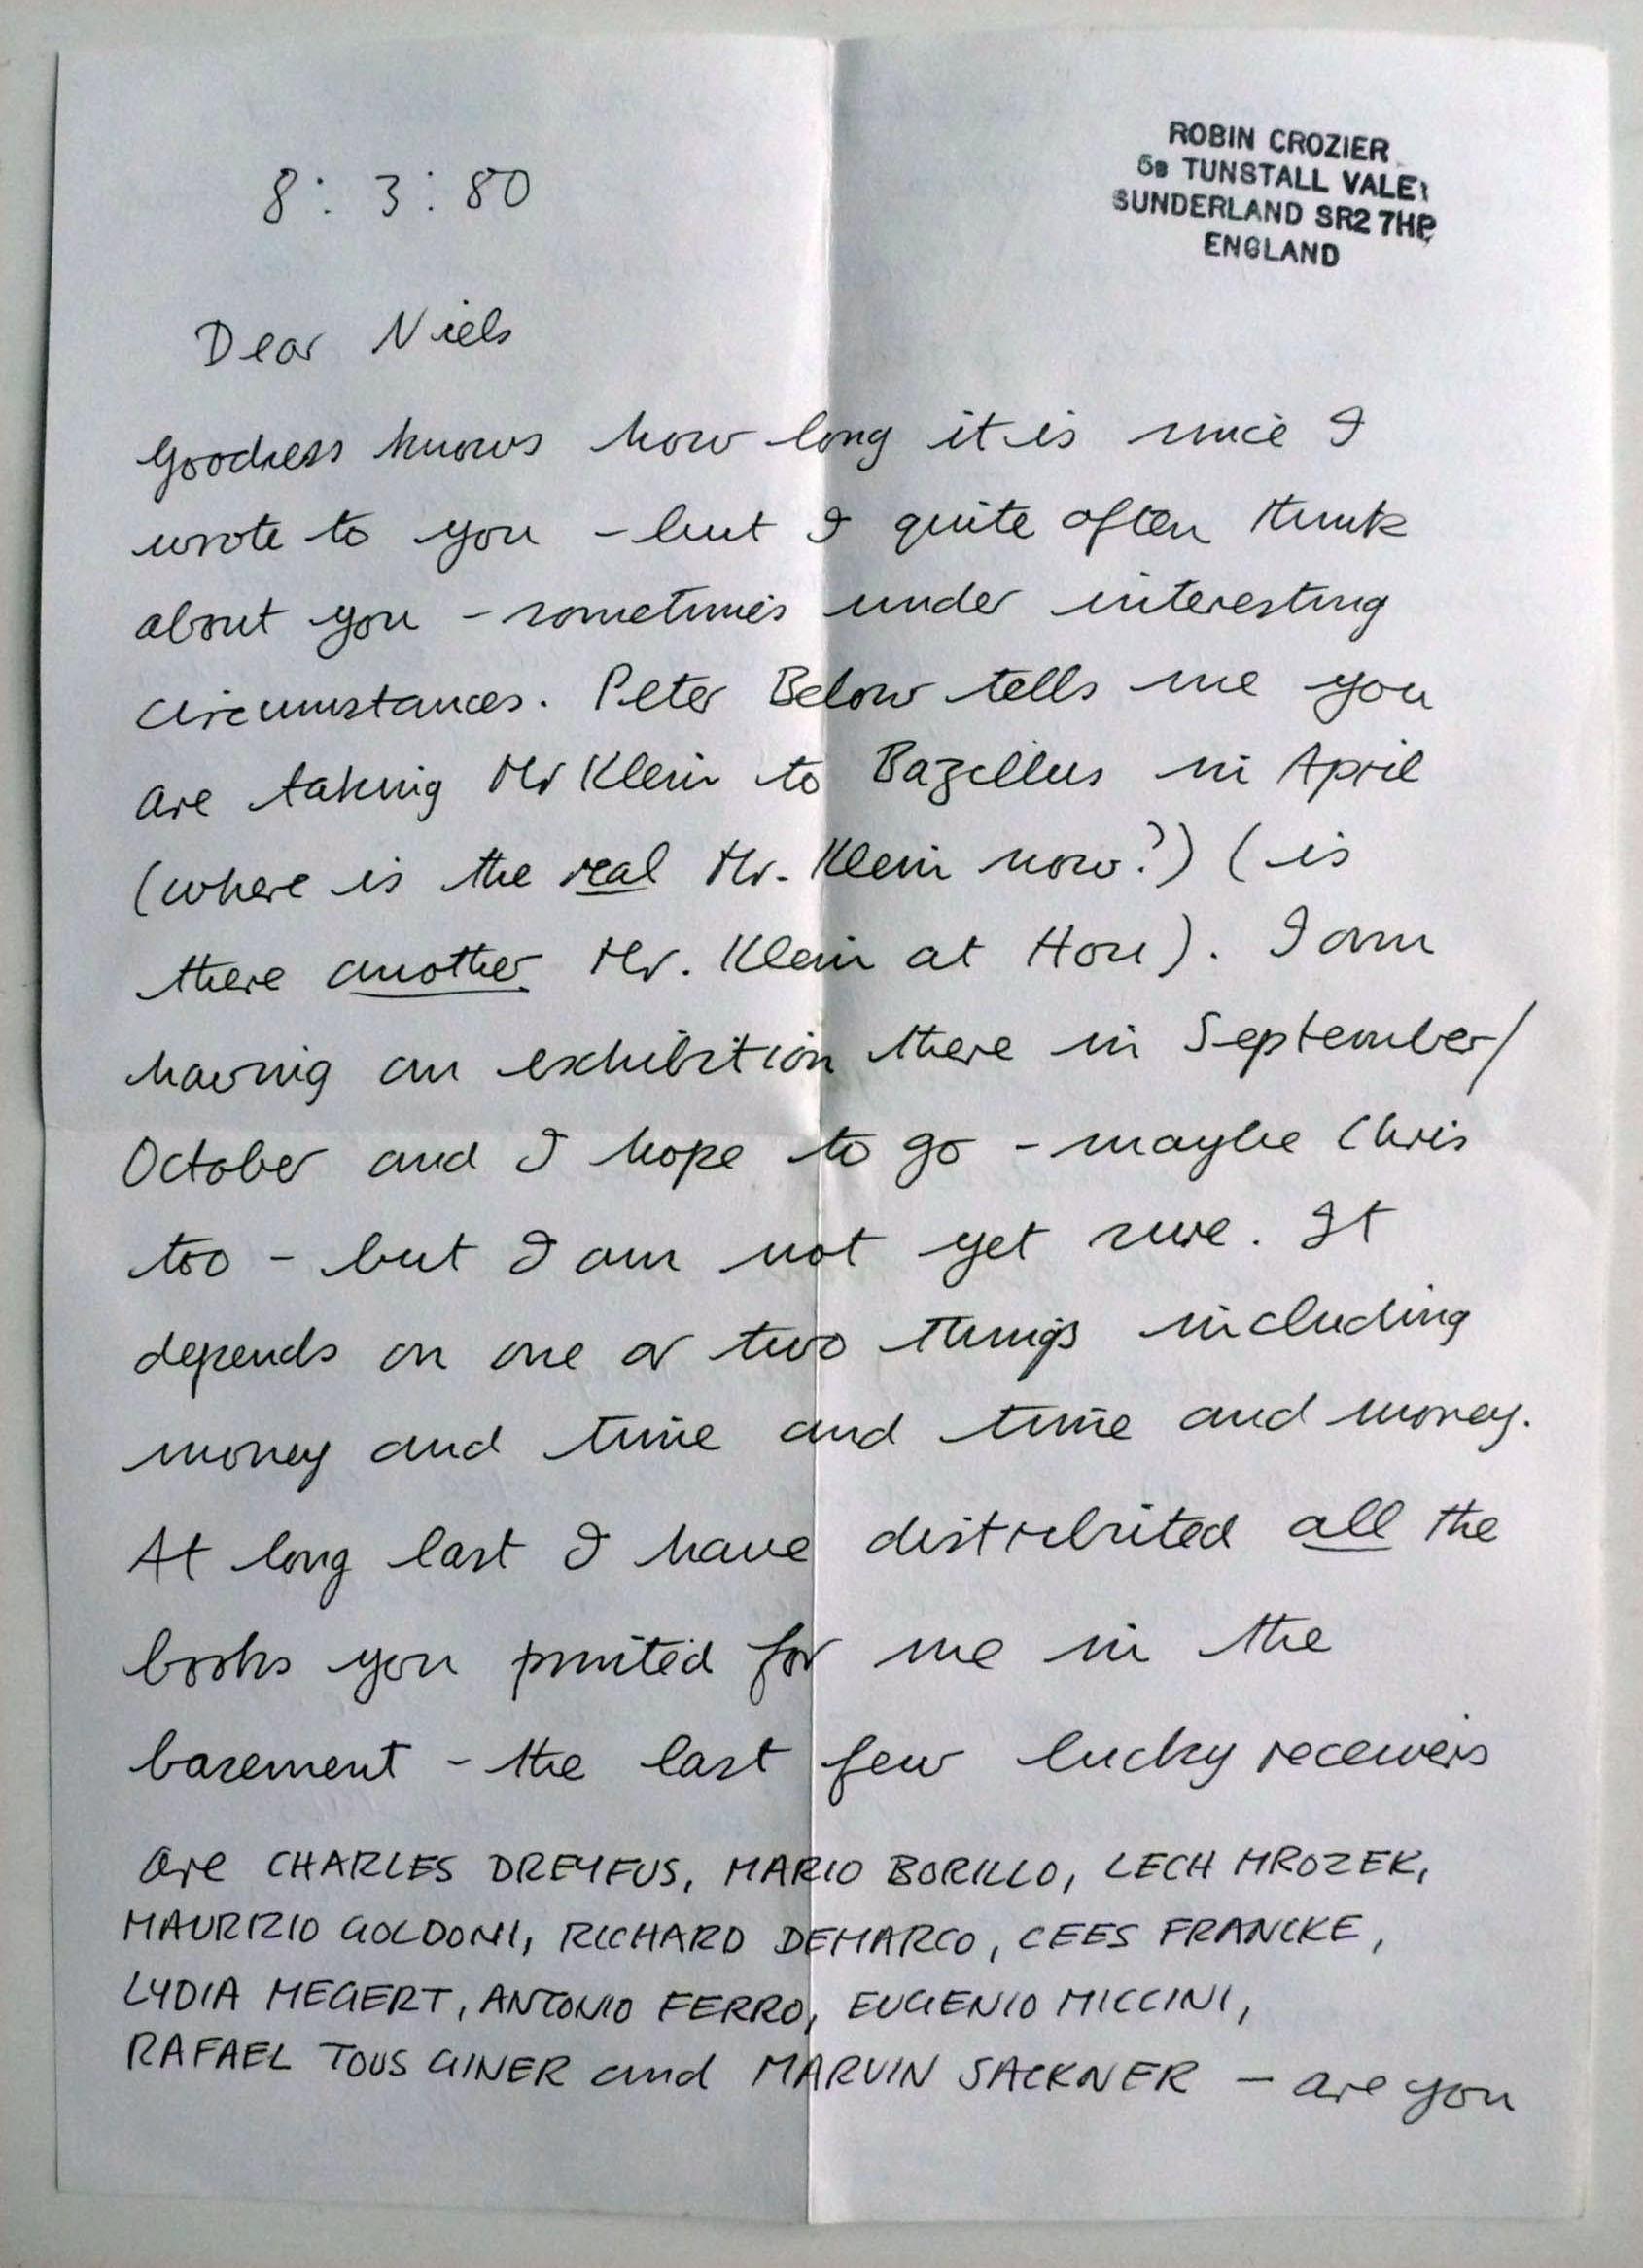 8:3:80
ROBIN CROZIER
5B TUNSTALL VALE
SUNDERLAND SR2 7HP
ENGLAND
Dear Niels
Goodness knows how long it is since I
wrote to you - but I quite often think
about you - sometimes under interesting
circumstances. Peter Below tells me you
are taking Mr Klein to Bazillus in April
(where is the real Mr. Klein now?) (is
there another Mr. Klein at Hou). I am
having an exhibition there in September/
October and I hope to go - maybe Chris
too - but I am not yet sure. It
depends on one or two things including
money and time and time and money.
At long last I have distributed all the
books you printed for me in the
basement - the last few lucky receivers
are CHARLES DREYFUS, MARIO BORILLO, LECH MROZEK,
MAURIZIO GOLDONI, RICHARD DEMARCO, CEES FRANCKE,
LYDIA MEGERT, ANTONIO FERRO, EUGENIO MICCINI,
RAFAEL TOUS GINER and MARVIN SACKNER - are you